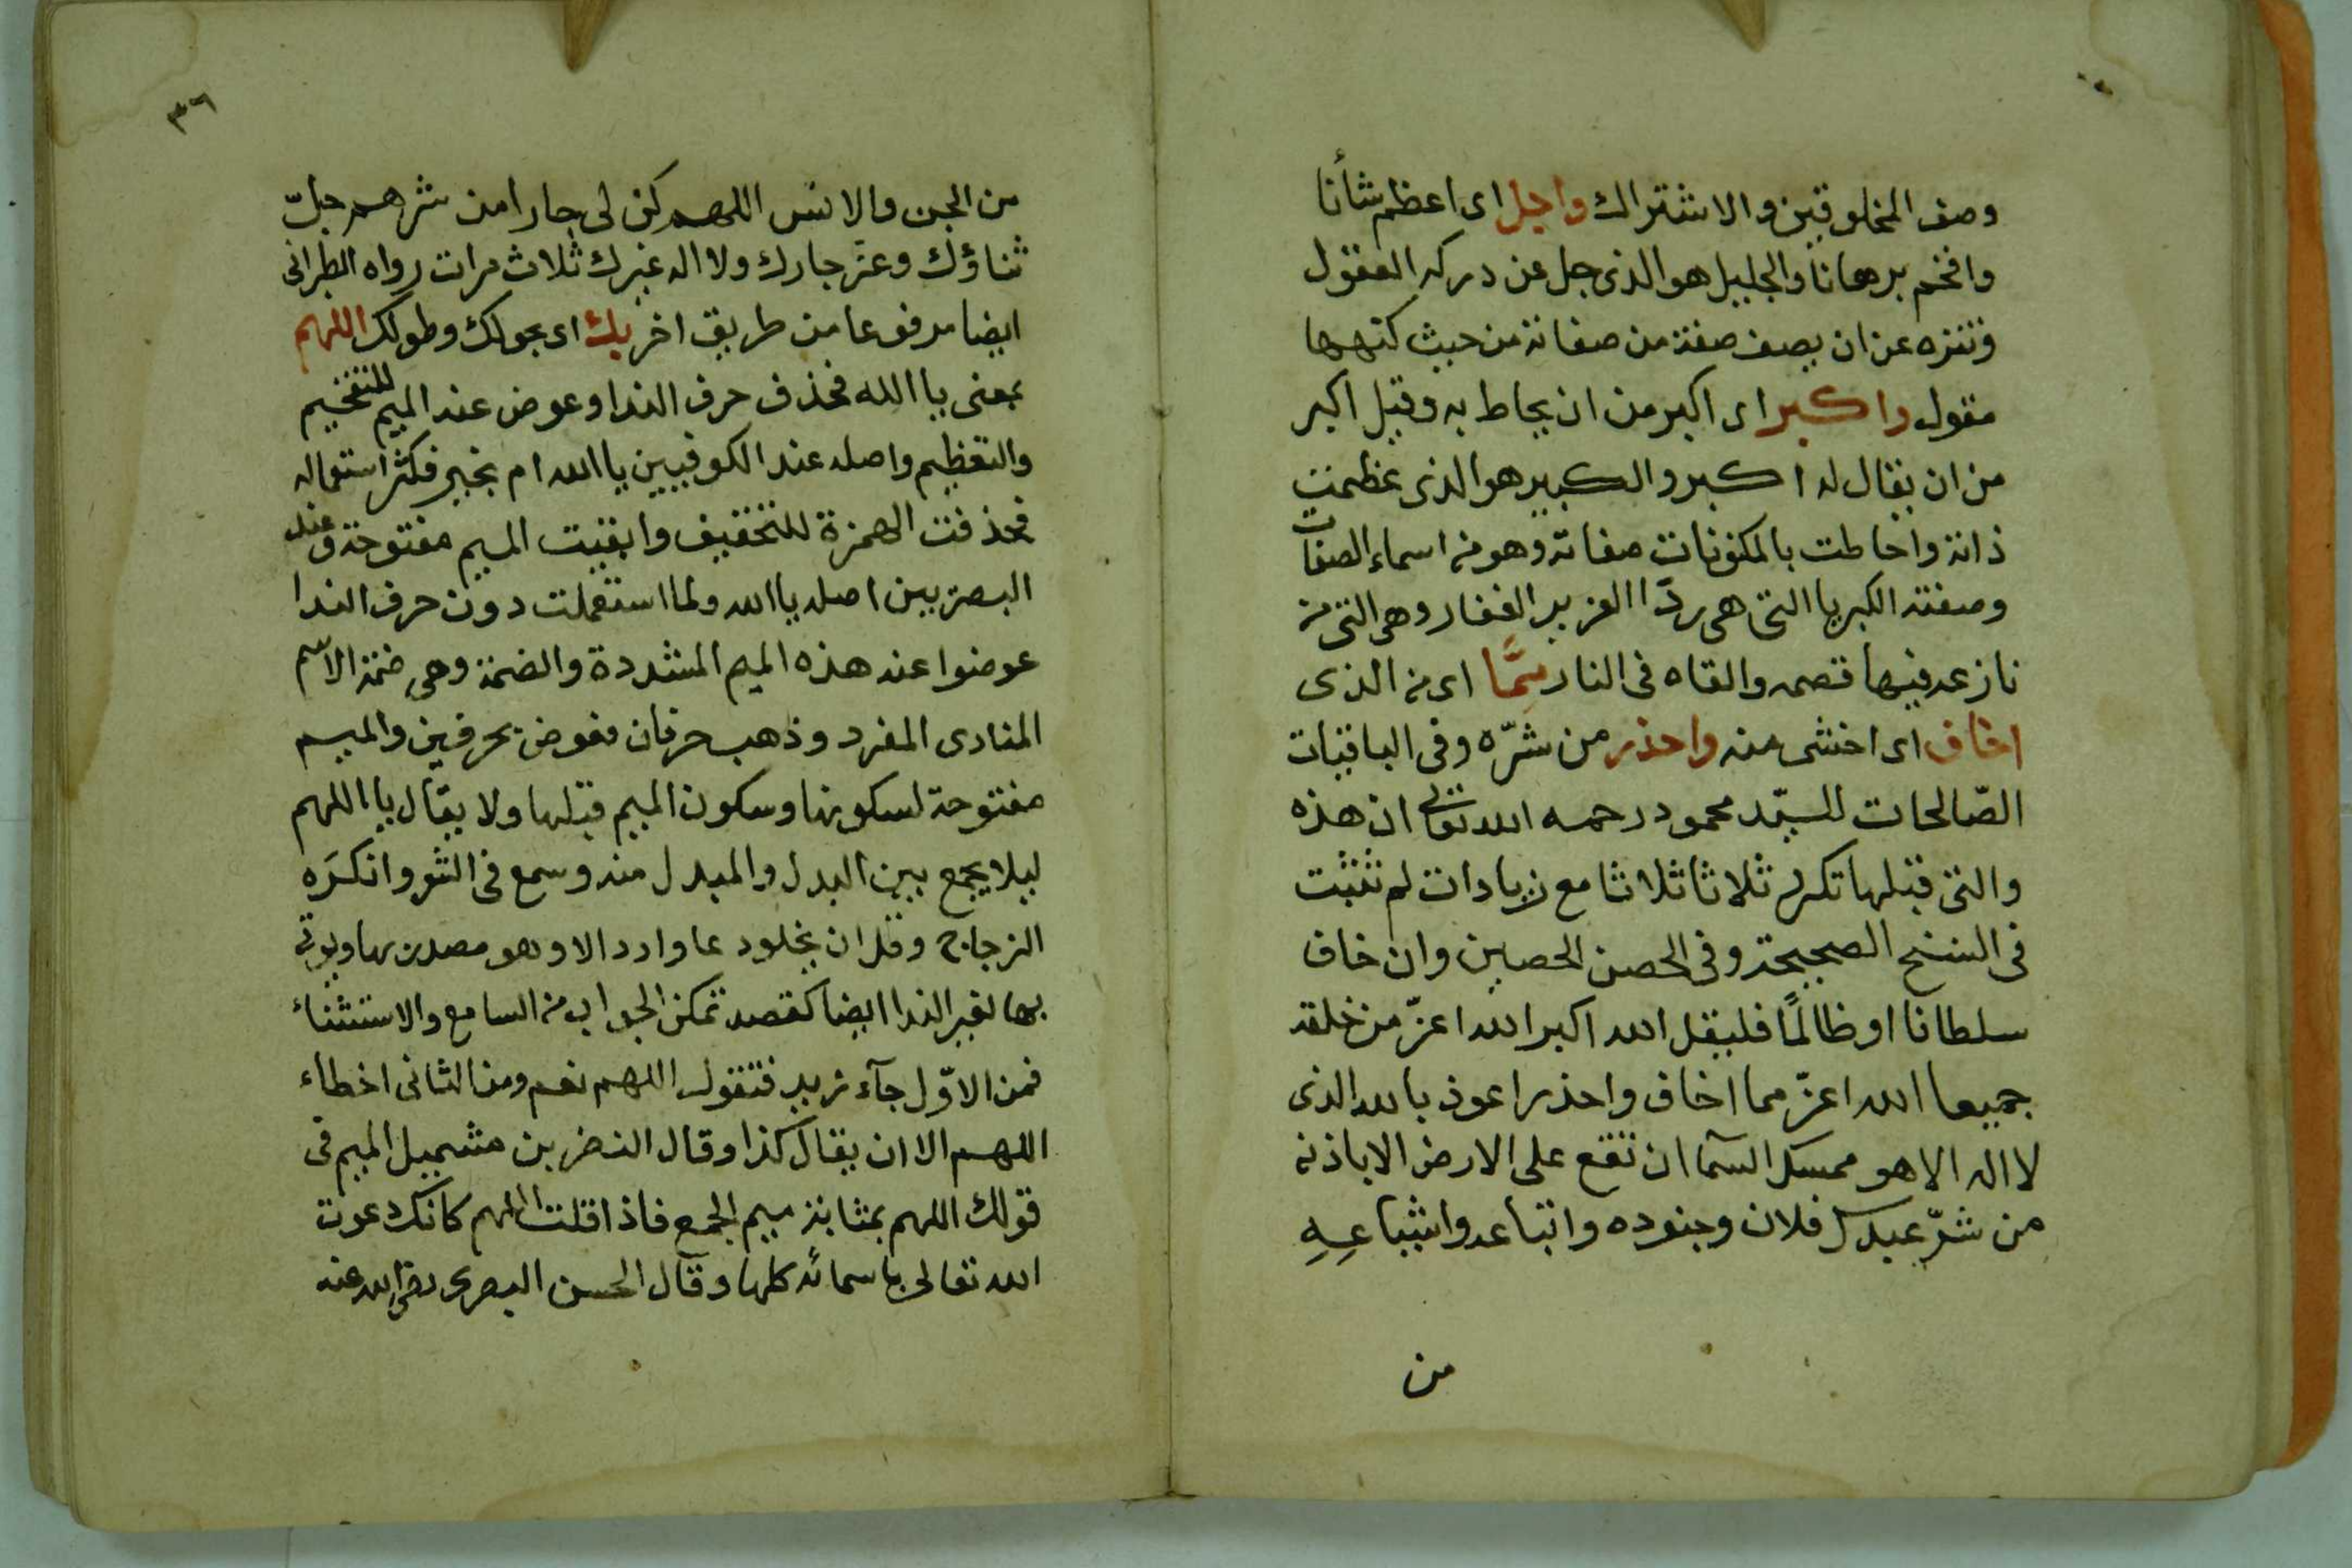 وصف المخلوقين والاشتراك واجل اى اعظم شأنا
وافخم برهانا والجليل هو الذى جل عن دركه العقول
وتنزه عن ان يصف صفة من صفاته من حيث كنهها
مقول واكبر اى اكبر من ان يحاط به وقيل اكبر
من ان يقال له اكبر والكبير هو الذى عظمت
ذاته واحاطت بالمكونات صفاته وهو من اسماء الصفات
وصفته الكبريا التى هى ردّا العزيز الغفار وهى التى من
نازعه فيها قصمه والقاه فى النار ممّا اى من الذى
اخاف اى اخشى منه واحذر من شرّه وفى الباقيات
الصّالحات للسيّد محمود رحمه الله تعالى ان هذه
والتى قبلها تكرر ثلاثا ثلاثا مع زيادات لم تثبت
فى النسخ الصحيحة وفى الحصن الحصين وان خاف
سلطانا او ظالمًا فليقل الله اكبر الله اعزّ من خلقه
جميعا الله اعزّ مما اخاف واحذر اعوذ بالله الذى
لا اله الا هو ممسك السّمآ ان تقع على الارض الا باذنه
من شرّ عبدك فلان وجنوده واتباعه واشياعهِ
من
٣٦
من الجن والانس اللهم كن لى جارا من شرهم جلّ
ثناؤك وعزّ جارك ولا اله غيرك ثلاث مرات رواه الطبرانى
ايضا مرفوعا من طريق اخر بك اى بحولك وطولك اللهم
بمعنى يا الله فحذف حرف الندا وعوض عنه الميم للتفخيم
والتعظيم واصله عند الكوفيين يا الله ام بخير فكثر استعماله
فحذفت الهمزة للتخفيف وابقيت الميم مفتوحة وعند
البصريين اصله يا الله ولما استعملت دون حرف الندا
عوضوا عنه هذه الميم المشددة والضمة وهى ضمة الاسم
المنادى المفرد وذهب حرفان فعوض بحرفين والميم
مفتوحة لسكونها وسكون الميم قبلها ولا يقال يا اللهم
ليلا يجمع بين البدل والمبدل منه وسمع فى الشعر وانكرَه
الزجاج وقل ان يخلود عا وارد الا وهو مصدر بها ويؤتى
بها لغير الندا ايضا كقصد تمكن الجواب من السامع والاستثناء
فمن الاوّل جآء زيد فتقول اللهم نعم ومن الثانى اخطاء
اللهم الا ان يقال كذا وقال النضر بن شميل الميم فى
قولك اللهم بمثابة ميم الجمع فاذا قلت اللهم كانك دعوت
الله تعالى باسمائه كلها وقال الحسن البصرى رضى الله عنه